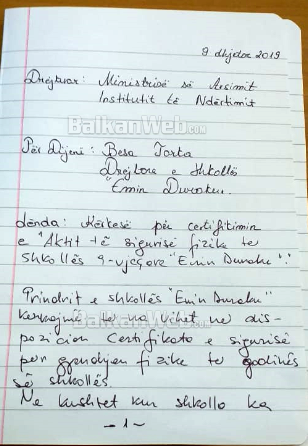 9 dhjetor 2019
Drejtuar: Ministrisë së Arsimit
Institutit të Ndërtimit
BalkanWeb.com
Për Dijeni: Besa Torta
Drejtore e Shkollës
"Emin Duraku.
Lënda: Kërkesë për certifikimin
e "Aktit të sigurisë fizike te
shkollës 9-vjeçare "Emin Duraku".
Prindrit e shkollës "Emin Duraku"
kërkojmë të na vihet në dis-
BalkanWeb.com
pozicion Certifikata e sigurisë
për gjendjen fizike te godinës
së shkollës.
Ne kushtet kur shkolla ka
- 1 -